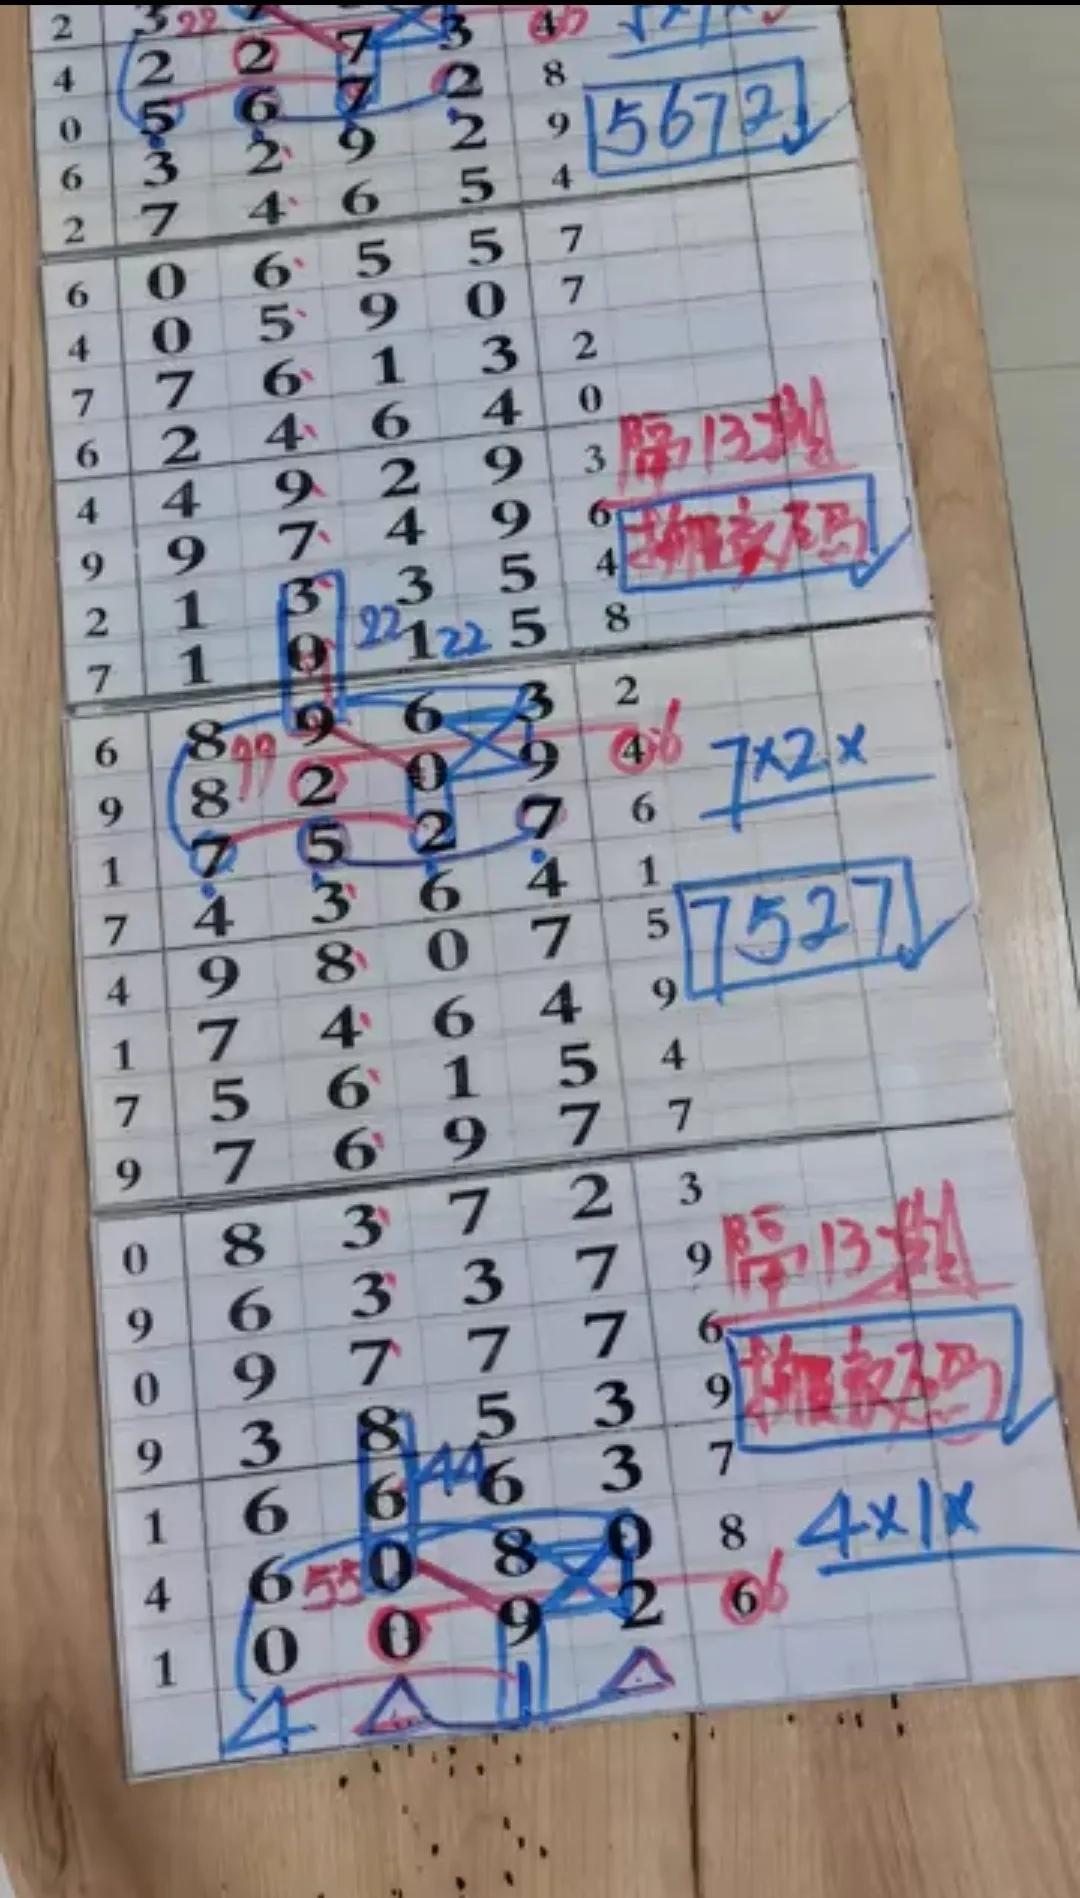 2 3 22 7 3 4 6
4 2 2 7 3 8
0 5 6 7 2 9 5672
6 3 2 9 2 4
2 7 4 6 5
6 0 6 5 5 7
4 0 5 9 0 7
7 7 6 1 3 2
6 2 4 6 4 0
4 4 9 2 9 3 隔13
9 9 7 4 9 6
2 1 3 3 5 4
7 1 0 22 1 22 5 8
6 8 9 6 3 2
9 8 99 2 0 9 4 6 7x2x
1 7 5 2 7 6
7 4 3 6 4 1
4 9 8 0 7 5 7527
1 7 4 6 4 9
7 5 6 1 5 4
9 7 6 9 7 7
0 8 3 7 2 3
9 6 3 3 7 9 隔13
0 9 7 7 7 6
9 3 8 5 3 9
1 6 6 44 6 3 7
4 6 55 0 8 0 8 4x1x
1 0 0 9 2 6 6
4 1